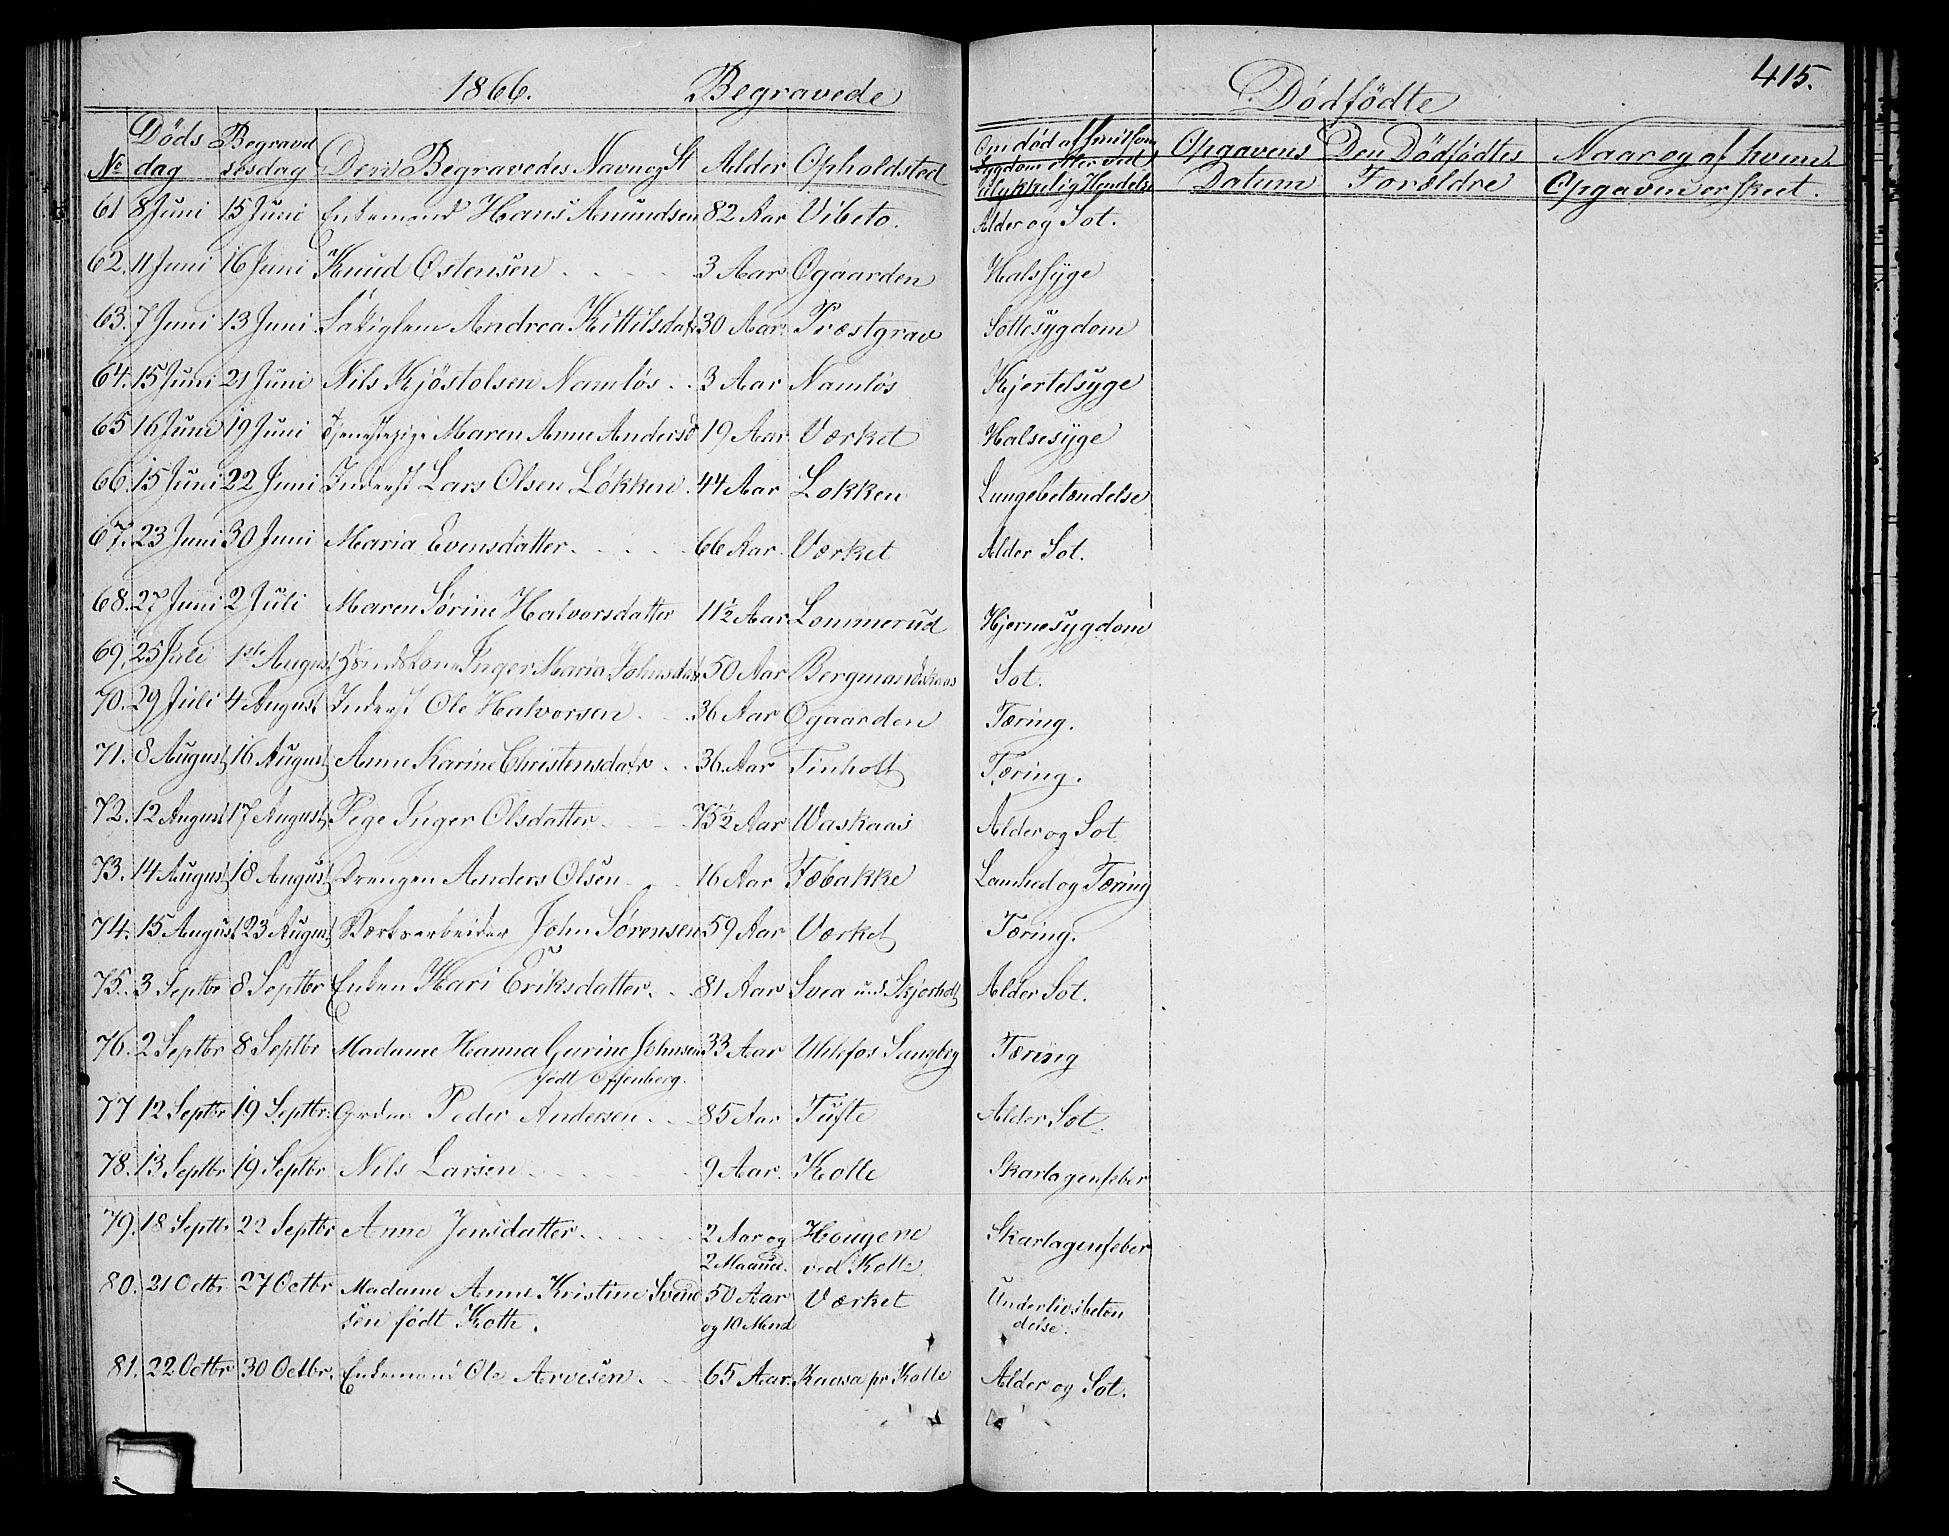 1866. Begravede
Dødfødte
415.
No Døds dag Begravelsesdag Den Begravedes Navn og St Alder Opholdsted Om død af smitsom Sygdom eller ved Ulykkelig Hendelse Opgavens Datum Den Dødfødtes Forældre Naar og af hvem Opgaven er skeet.
61 8 Juni 15 Juni Enkemand Hans Amundsen 82 Aar Vibeto. Alder og Sot.
62. 11 Juni 16 Juni Knud Østensen 3 Aar Øgaarden Halssyge
63. 7 Juni 13 Juni Andrea Kittilsdatr 30 Aar Præstgrav Sottesygdom
64. 15 Juni 21 Juni Nils Kjöstolsen Namløs 3 Aar Namløs Kjertelsyge
65 16 Juni 19 Juni Tjenestepige Maren Anne Andersd 19 Aar Værket Halsesyge
66. 15 Juni 22 Juni Inderst Lars Olsen Løkken. 44 Aar Løkken Lungebetændelse
67. 23 Juni 30 Juni Maria Evensdatter 66 Aar Værket Alder Sot.
68. 27 Juni 2 Juli Maren Sørine Halvorsdatter 11½ Aar Lommerud Hjernesygdom
69. 25 Juli 1ste August Inger Maria Johnsdatr 50 Aar Bergmandskaas Sot.
70. 29 Juli 4 August Inderst Ole Halvorsen 36 Aar Øgaarden Tæring.
71. 8 August 16 August Anne Karine Christensdatr 36 Aar Finholt Tæring.
72. 12 August 17 August Pige Inger Olsdatter 75½ Aar Waskaas Alder og Sot
73. 14 August 18 August Drengen Anders Olsen 16 Aar Fæbakke Lamhed og Tæring
74. 15 August 23 August Værksarbeider John Sørensen 59 Aar Værket Tæring.
75. 3 Septbr 8 Septbr Enken Kari Eriksdatter 81 Aar Svea und. Skjerholt Alder Sot.
76. 2 Septbr 8 Septbr Madame Hanna Gurine Johnsen 33 Aar Uhlefos Tæring
født Offenberg.
77 12 Septbr 19 Septbr. Peder Andersen 85 Aar Tufte Alder Sot.
78. 13 Septbr 19 Septbr Nils Larsen 9 Aar. Kolte Skarlagensfeber
79. 18 Septbr 22 Septbr Anne Jensdatter 2 Aar og Hougene Skarlagensfeber
2 Maaned. ved Kolte
80. 21 Octbr 27 Octbr Madame Anne Kristine Svend 50 Aar Værket Underlivsbetæn
sen født Koth. og 10 Mned delse.
81. 22 Octbr 30 Octbr. Enkemand Ole Arvesen 65 Aar. Kaasa pr Kolte Alder og Sot.